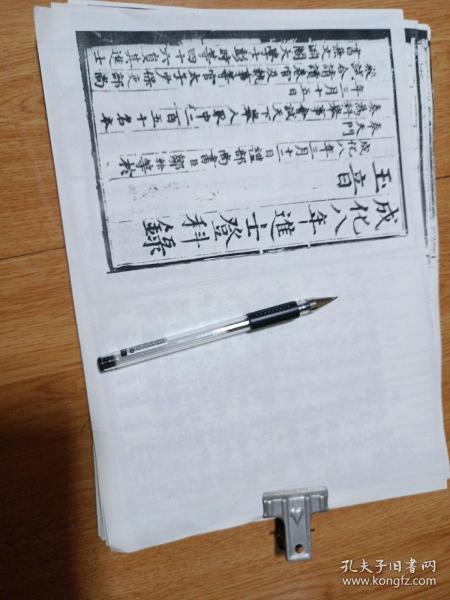 成化八年進士登科錄
玉音
成化八年三月十二日禮部尚書臣鄒幹等於
奉天門
奏為科舉事會試天下舉人取中二百五十名本
年三月十五日
殿試合請讀卷官及執事等官太子少保吏部尚
書兼文淵閣大學士彭時等四十六員其進士
孔夫子旧书网
www.kongfz.com